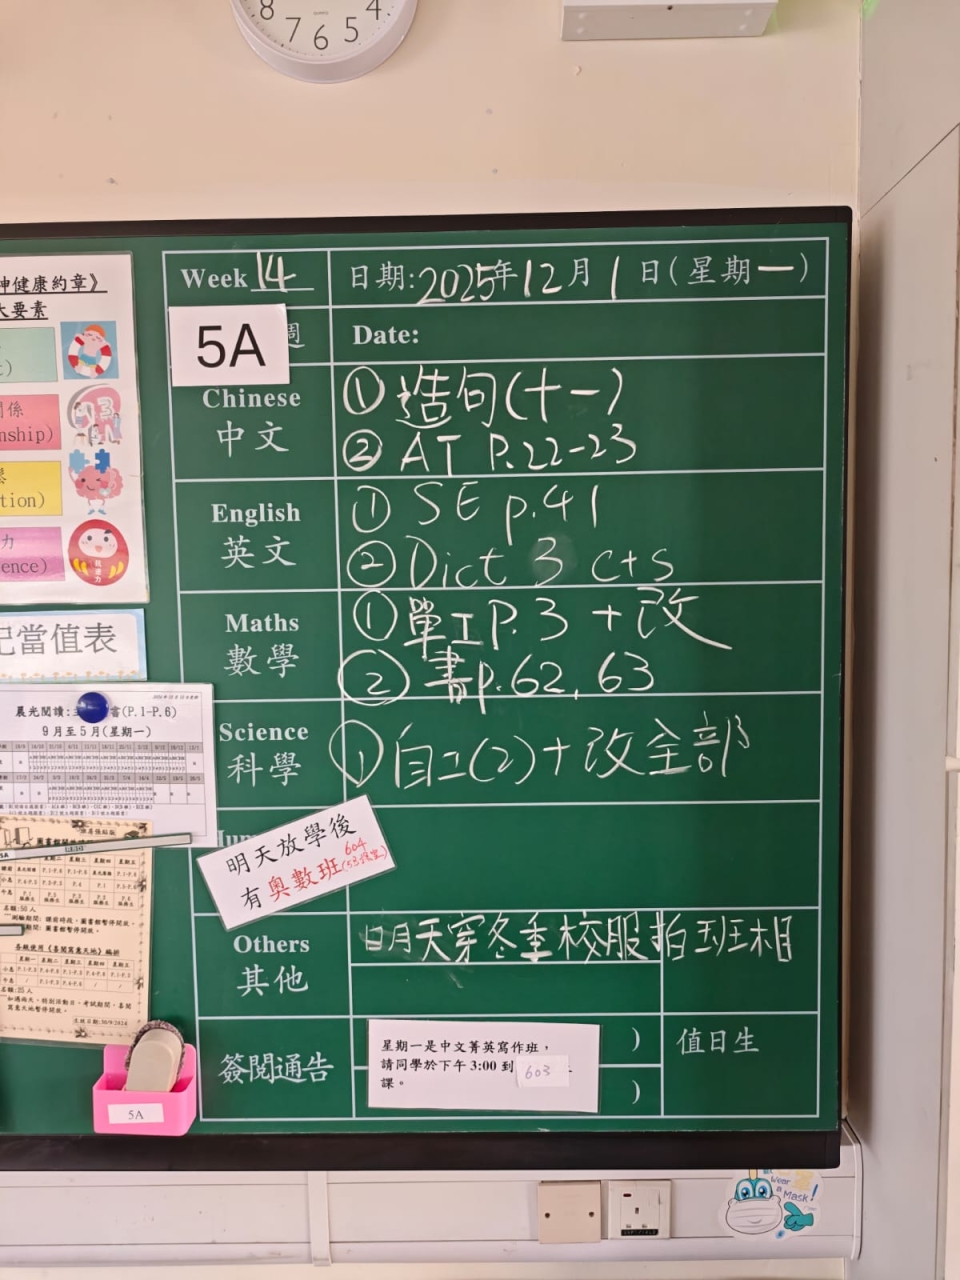 8 7 6 5 4
Week 14
日期:2025年12月1日(星期一)
5A
週
Date:
Chinese
中文
① 造句(十一)
② AT P.22-23
English
英文
① SE p.41
② Dict 3 c+s
Maths
數學
① 單工P.3 + 改
② 書p.62, 63
Science
科學
① 自工(2)+改全部
明天放學後
有奧數班
604
Others
其他
明天穿冬季校服拍班相
簽閱通告
星期一是中文菁英寫作班，
請同學於下午 3:00 到 603
課。
)
)
值日生
神健康約章》
大要素
係
nship)
tion)
力
ence)
記當值表
晨光閱讀:主 書(P.1-P.6)
9月至5月(星期一)
5A
各級使用《喜閱寫意天地》編排
生效日期:30/9/2024
5A
Wear
a
Mask!